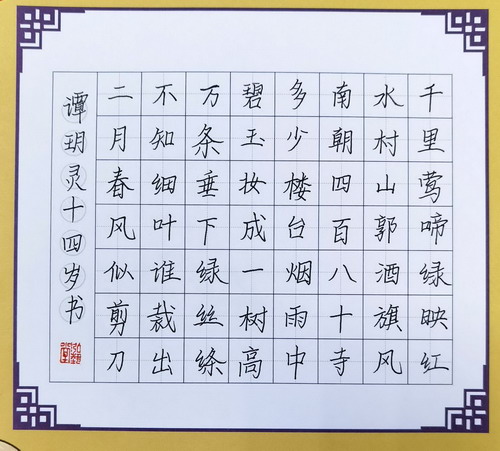 千里莺啼绿映红
水村山郭酒旗风
南朝四百八十寺
多少楼台烟雨中
碧玉妆成一树高
万条垂下绿丝绦
不知细叶谁裁出
二月春风似剪刀
谭玥灵十四岁书